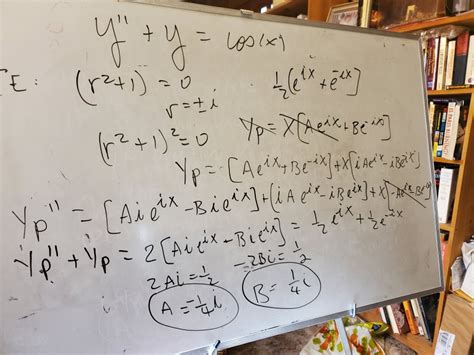 y'' + y = cos(x)
TE: (r²+1) = 0
½(e^{ix} + e^{-ix})
r = ±i
(r²+1)² = 0
Yp = X[Ae^{ix} + Be^{-ix}]
Yp = [Ae^{ix} + Be^{-ix}] + x[iAe^{ix} - iBe^{-ix}]
Yp'' = [Aie^{ix} - Bie^{-ix}] + [iAe^{ix} - iBe^{-ix}] + x[-Ae^{ix} - Be^{-ix}]
Yp'' + Yp = 2[Aie^{ix} - Bie^{-ix}] = ½e^{ix} + ½e^{-ix}
2Ai = ½
-2Bi = ½
A = -¼i
B = ¼i